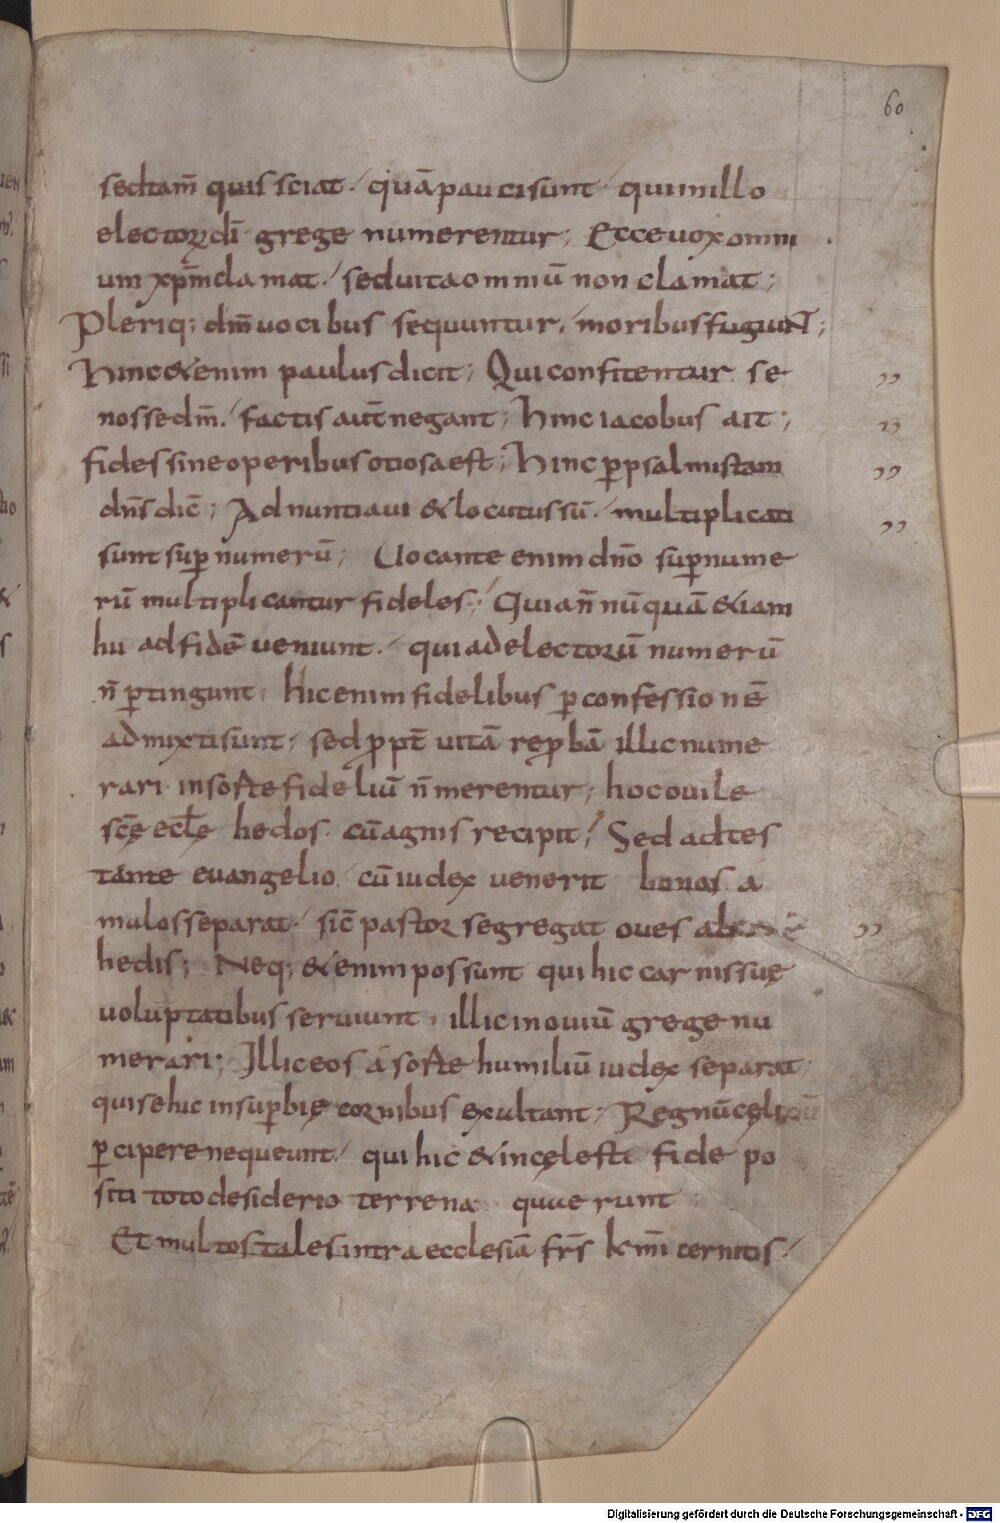 60
sed tam̄ quis sciat. quā pauci sunt qui in illo
electoꝝ dī grege numerentur; Ecce uox omni
um xp̄m clamat. sed uita omniū non clamat;
Pleriq; dm̄ uocibus sequuntur. moribus fugiunt;
Hinc & enim paulus dicit; Qui confitentur se
nosse dm̄. factis aut̄ negant; Hinc iacobus ait;
fides sine operibus otiosa est; Hinc ꝑ psalmistam
dn̄s dic̄; Adnuntiaui & locutus sū. multiplicati
sunt suꝑ numerū; Uocante enim dn̄o suꝑ nume
rū multiplicantur fideles; Quia n̄ nūquā & iam
hii ad fidē ueniunt. qui ad electorū numerū
n̄ ꝑtingunt. Hic enim fidelibus ꝑ confessionē
admixti sunt. sed ꝓpt̄ uitā reꝓbā illic nume
rari in sorte fideliū n̄ merentur; hoc ouile
sc̄ę eccl̄ę hedos. cū agnis recipit; Sed adtes
tante euangelio. cū iudex uenerit bonos a
mulos separat. sic̄ pastor segregat oues ab
hedis; Neq; & enim possunt qui hic carnis suę
uoluptatibus seruiunt. illic in ouiū grege nu
merari; Illic eos a sorte humiliū iudex separat
qui se hic in suꝑbię cornibus exultant; Regnū cęlorū
ꝑcipere nequeunt. qui hic & in cęlesti fide po
siti toto desiderio terrena quęrunt
Et multos tales intra ecclesiā fr̄s km̄i cernitis.
Digitalisierung gefördert durch die Deutsche Forschungsgemeinschaft - DFG